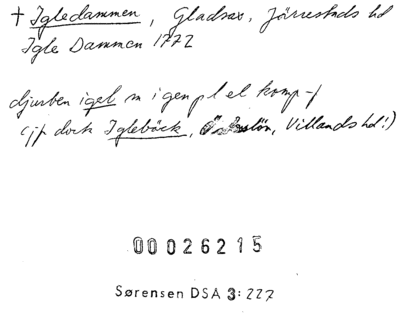 † Igledammen, Gladsax, Järrestads hd
Igle Dammen 1772
djurben igel m i gen pl el komp-f
(jf dock Iglebäck, Villands hd!)
00026215
Sørensen DSA 3: 227